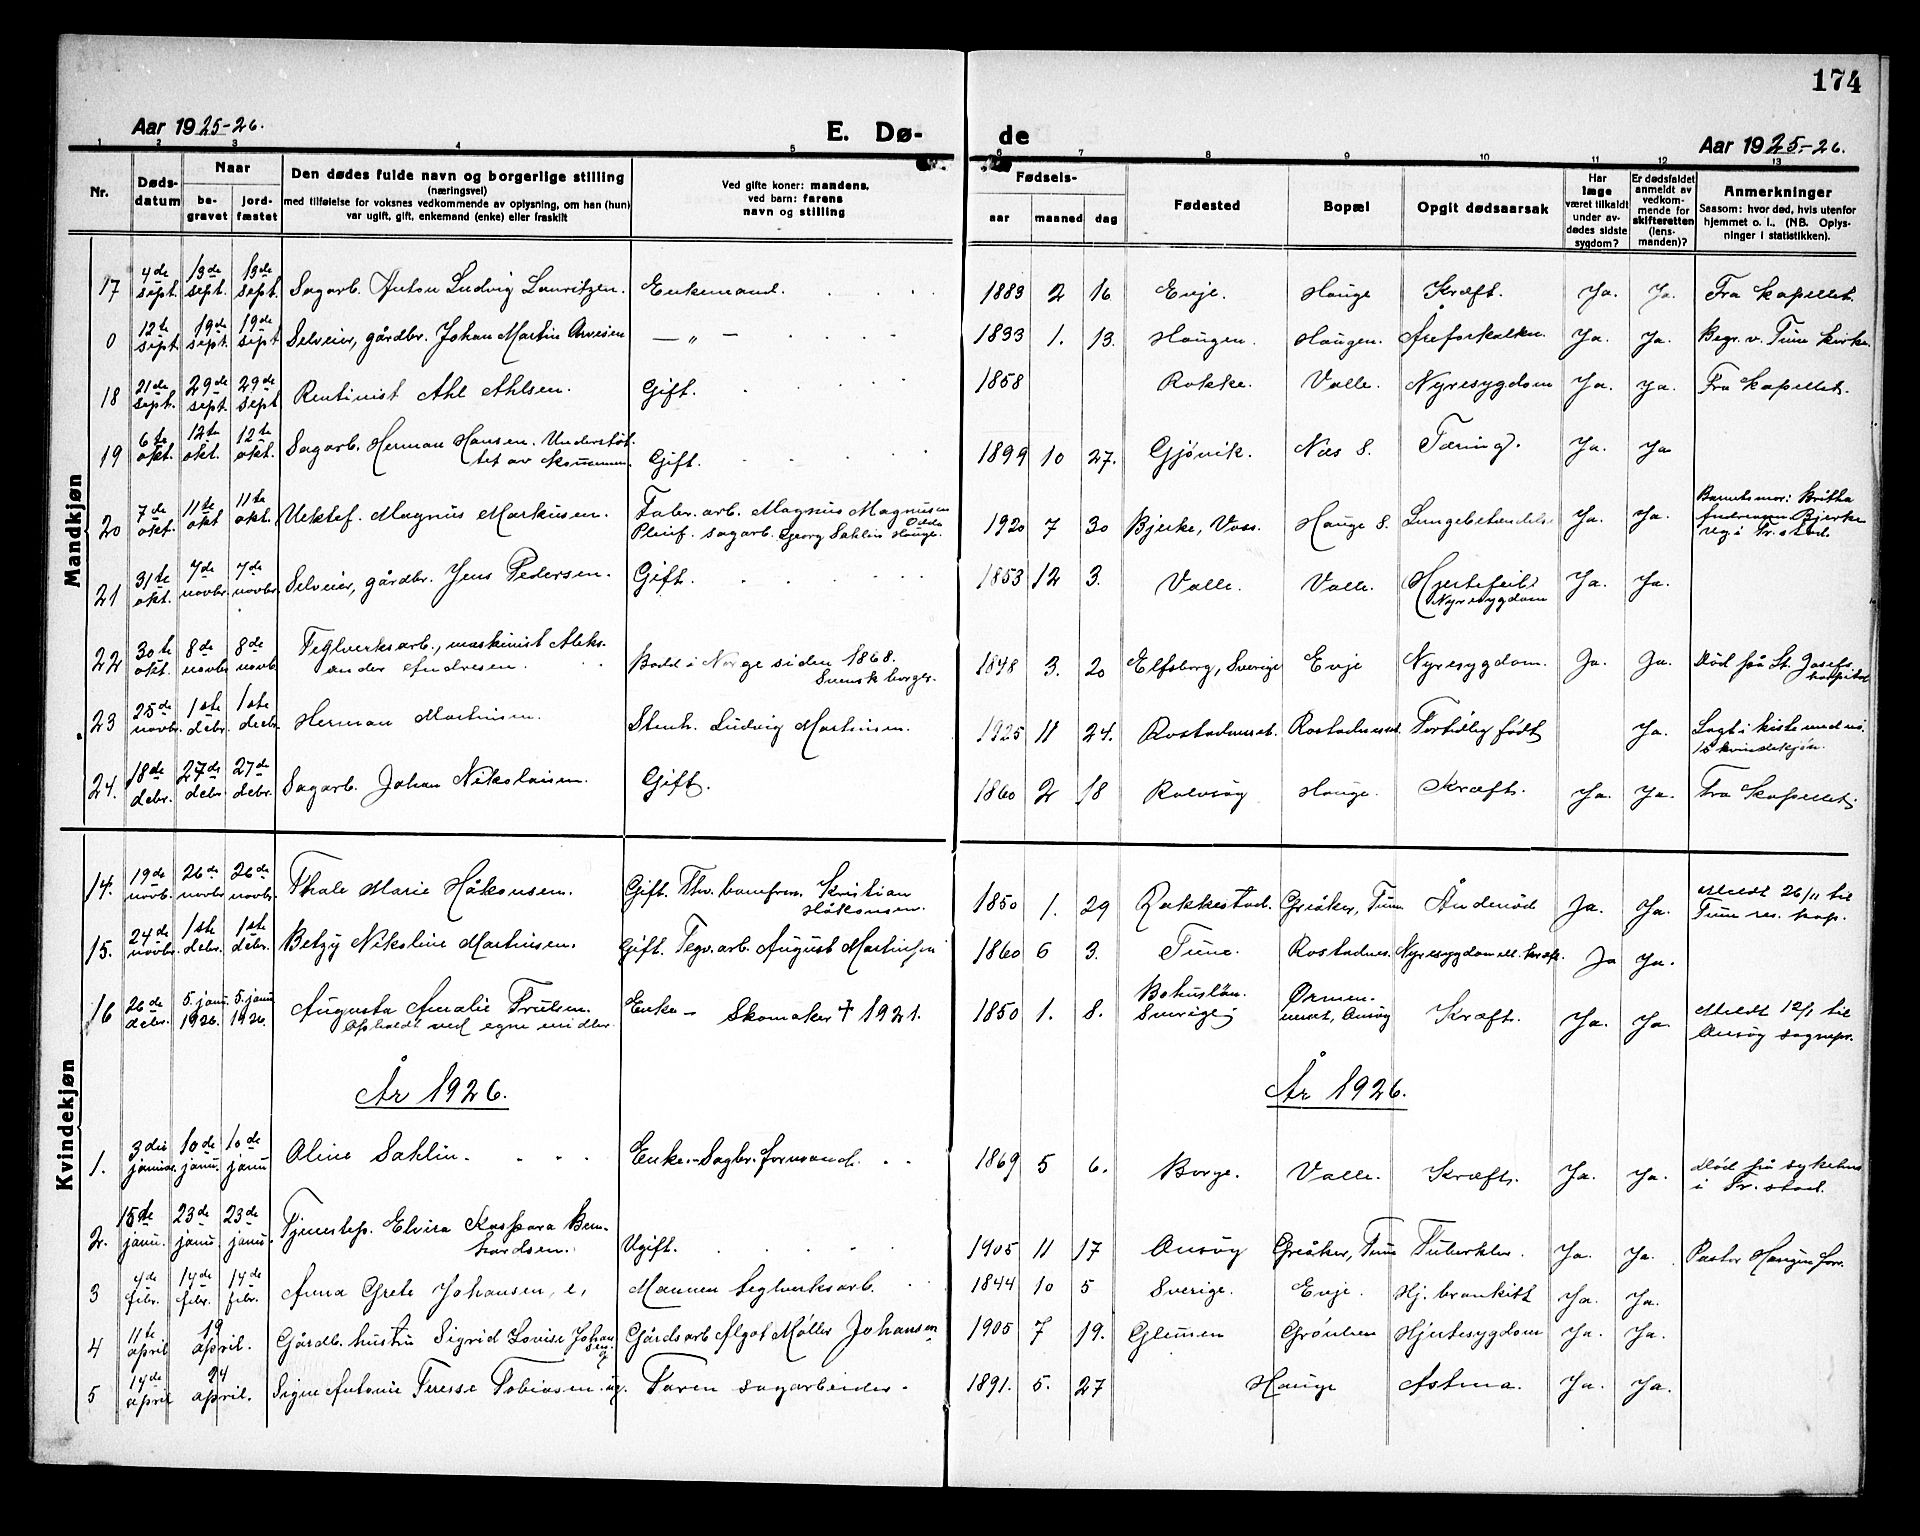 174
Aar 1925-26.
E. Dø-
de
Aar 1925-26.
1 2 3 4 5 6 7 8 9 10 11 12 13
Nr.
Døds-
datum
Naar
be-
gravet
jord-
fæstet
Den dødes fulde navn og borgerlige stilling
(næringsvei)
med tilføielse for voksnes vedkommende av oplysning, om han (hun)
var ugift, gift, enkemand (enke) eller fraskilt
Ved gifte koner: mandens,
ved barn: farens
navn og stilling
Fødsels-
aar maaned dag
Fødested
Bopæl
Opgit dødsaarsak
Har
læge
været tilkaldt
under av-
dødes sidste
sygdom?
Er dødsfaldet
anmeldt av
vedkom-
mende for
skifteretten
(lens-
manden)?
Anmerkninger
Saasom: hvor død, hvis utenfor
hjemmet o. l., (NB. Oplys-
ninger i statistikken).
Mandkjøn
17 4de sept. 13de sept. 13de sept. Sagarb. Anton Ludvig Lauritzen. Enkemand. 1883 2 16 Evje. Hauge Kræft. Ja. Ja. Fra kapellet.
0 12te sept 19de sept. 19de sept Selveier, gårdbr. Johan Martin Arvesen — „ — 1833 1. 13. Haugen. Haugen. Åreforkalkn. Ja. Ja. Begr. v. Tune kirke
18 21de sept. 29de sept. 29de sept Rentinist Ahl Ahlsen. Gift. 1858 Rokke. Valle. Nyresygdom Ja. Ja. Fra kapellet.
19 6te okt. 12te okt. 12te okt. Sagarb. Herman Hansen. Understøt-
tet av kommunen. Gift. 1899 10 27. Gjøvik. Næs S. Tæring. Ja. Ja
20 7de okt. 11te okt 11te okt. Uektef. Magnus Markusen. Fabr. arb. Magnus Magnusen Odda
Pleief. sagarb. Georg Sahlin Hauge. 1920 7 30 Bjerke, Voss. Hauge S. Lungebetendelse Ja. Ja. Barnets mor: Britha
Andreasen Bjerke
reg. i Fr.stad.
21 31te okt. 7de novbr. 7de novbr. Selveier, gårdbr. Jens Pedersen. Gift. 1853 12 3. Valle. Valle. Hjertefeil.
Nyresygdom Ja. Ja.
22 30te okt. 8de novbr 8de novb. Teglverksarb., maskinist Aleks-
ander Andresen. Bodd i Norge siden 1868.
Svensk borger. 1848 3. 20 Elfsborg, Sverige Evje Nyresygdom. Ja. Ja. Død på St. Josefs
hospital
23 25de novbr. 1ste debr. 1ste debr. Herman Martinsen. Stenh. Ludvig Martinsen. 1925 11 24. Rostadneset. Rostadneset. Fortidlig født Ja. Lagt i kiste med nr.
15 kvindekjøn.
24. 18de debr. 27de debr. 27de debr. Sagarb. Johan Nikolaisen. Gift. 1860 2 18 Rolvsøy Hauge. Kræft. Ja. Ja. Fra Kapellet.
Kvindekjøn
14. 19de novb. 26de novbr 26de novbr. Thale Marie Håkonsen. Gift. Thv. Kristian
Håkonsen. 1850 1. 29 Rakkestad. Greåker, Tune Åndenød Ja. Ja. Meldt 26/11 til
Tune res. kap.
15. 24de novbr. 1ste debr. 1ste debr. Betzy Nikoline Martinsen. Gift. Tegv. arb. August Martinsen 1860 6 3. Tune. Rostadnes. Nyresygdom ell. kræft. Ja Ja.
16 26de debr. 5. janu. 1926. 5. janu 1926. Augusta Amalie Trulsen.
Opholdt ved egne midler Enke — Skomaker † 1921. 1850 1. 8. Bohuslän.
Sverige Ørmen-
neset, Onsøy Kræft. Ja. Ja. Meldt 12/1 til
Onsøy sognepr.
År 1926. År 1926.
1. 3die januar. 10de janu. 10de janu Oline Sahlin. Enke. - Sagbr. formand. 1869 5 6. Borge. Valle. Kræft. Ja. Ja. Død på sykehus
i Fr.stad.
2. 15de janu. 23de janu. 23de janu. Tjenestep. Elvira Kaspara Bern-
hardsen. Ugift. 1905 11 17 Onsøy Greåker, Tune Tuberkler. Ja. Ja. Pastor Haugen forr.
3 4de febr. 14de febr. 14de febr. Anna Grete Johansen, e, Mannen teglverksarb. 1844 10 5 Sverige. Evje. Hj. bronkitt Ja. Ja.
4 11te april 19 april. Gårdb. hustru Sigrid Lovise Johan
sen g Gårdsarb Algot Møller Johansen 1905 7 19. Glemen Grønlien Hjertesygdom Ja. Ja.
5 14de april 24 april. Signe Antonie Terese Tobiasen ug. Faren sagarbeider. 1891. 5. 27 Hauge Astma. Ja. Ja.